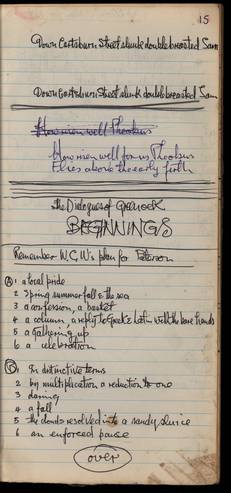 15
Down Cartsburn Street slunk double breasted Sam
Down Cartsburn Street slunk double breasted Sam
How men well
How men well
Flies above the early firth
The Dialogues of Greenock
BEGINNINGS
Remember W.C.W's plan for Paterson
A: 1 a local pride
2 spring summer fall & the sea
3 a confession, a basket
4 a column, a reply to Greek & Latin with the bare hands
5 a gathering up
6 a celebration
B: 1 In distinctive terms
2 by multiplication a reduction to one
3 daring
4 a fall
5 the clouds resolved into a sandy sluice
6 an enforced pause
over